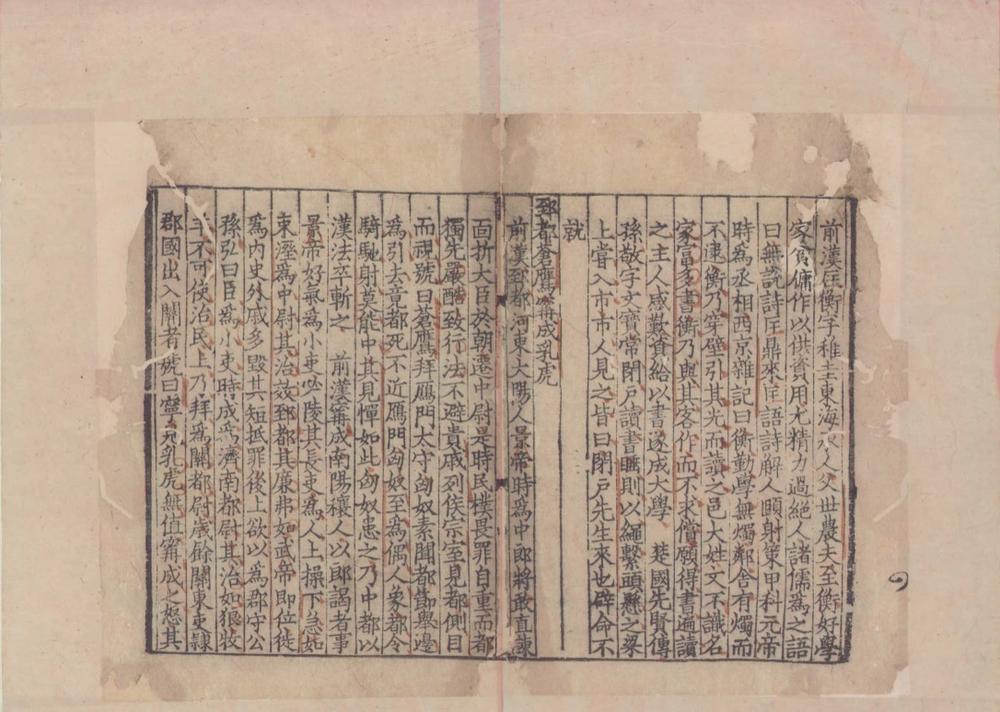 前漢匡衡字稚圭東海承人父世農夫至衡好學
家貧傭作以供資用尤精力過絕人諸儒為之語
曰無說詩匡鼎來匡語詩解人頤射策甲科元帝
時為丞相西京雜記曰衡勤學無燭鄰舍有燭而
不逮衡乃穿壁引其光而讀之邑大姓文不識名
家富多書衡乃與其客作而不求償願得書遍讀
之主人感歎資給以書遂成大學　楚國先賢傳
孫敬字文寶常閉戶讀書睡則以繩繫頭懸之梁
上嘗入市市人見之皆曰閉戶先生來也辟命不
就
郅都蒼鷹甯成乳虎
前漢郅都河東大陽人景帝時為中郎將敢直諫
面折大臣於朝遷中尉是時民樸畏罪自重而都
獨先嚴酷致行法不避貴戚列侯宗室見都側目
而視號曰蒼鷹拜鴈門太守匈奴素聞都節舉邊
為引去竟都死不近鴈門匈奴至為偶人象都令
騎馳射莫能中其見憚如此匈奴患之乃中都以
漢法卒斬之　前漢甯成南陽穰人以郎謁者事
景帝好氣為小吏必陵其長吏為人上操下急如
束溼為中尉其治效郅都其廉弗如武帝即位徙
為內史外戚多毀其短抵罪後上欲以為郡守公
孫弘曰臣為小吏時成為濟南都尉其治如狼牧
羊不可使治民上乃拜為關都尉歲餘關東吏隸
郡國出入關者號曰寧見乳虎無值甯成之怒其